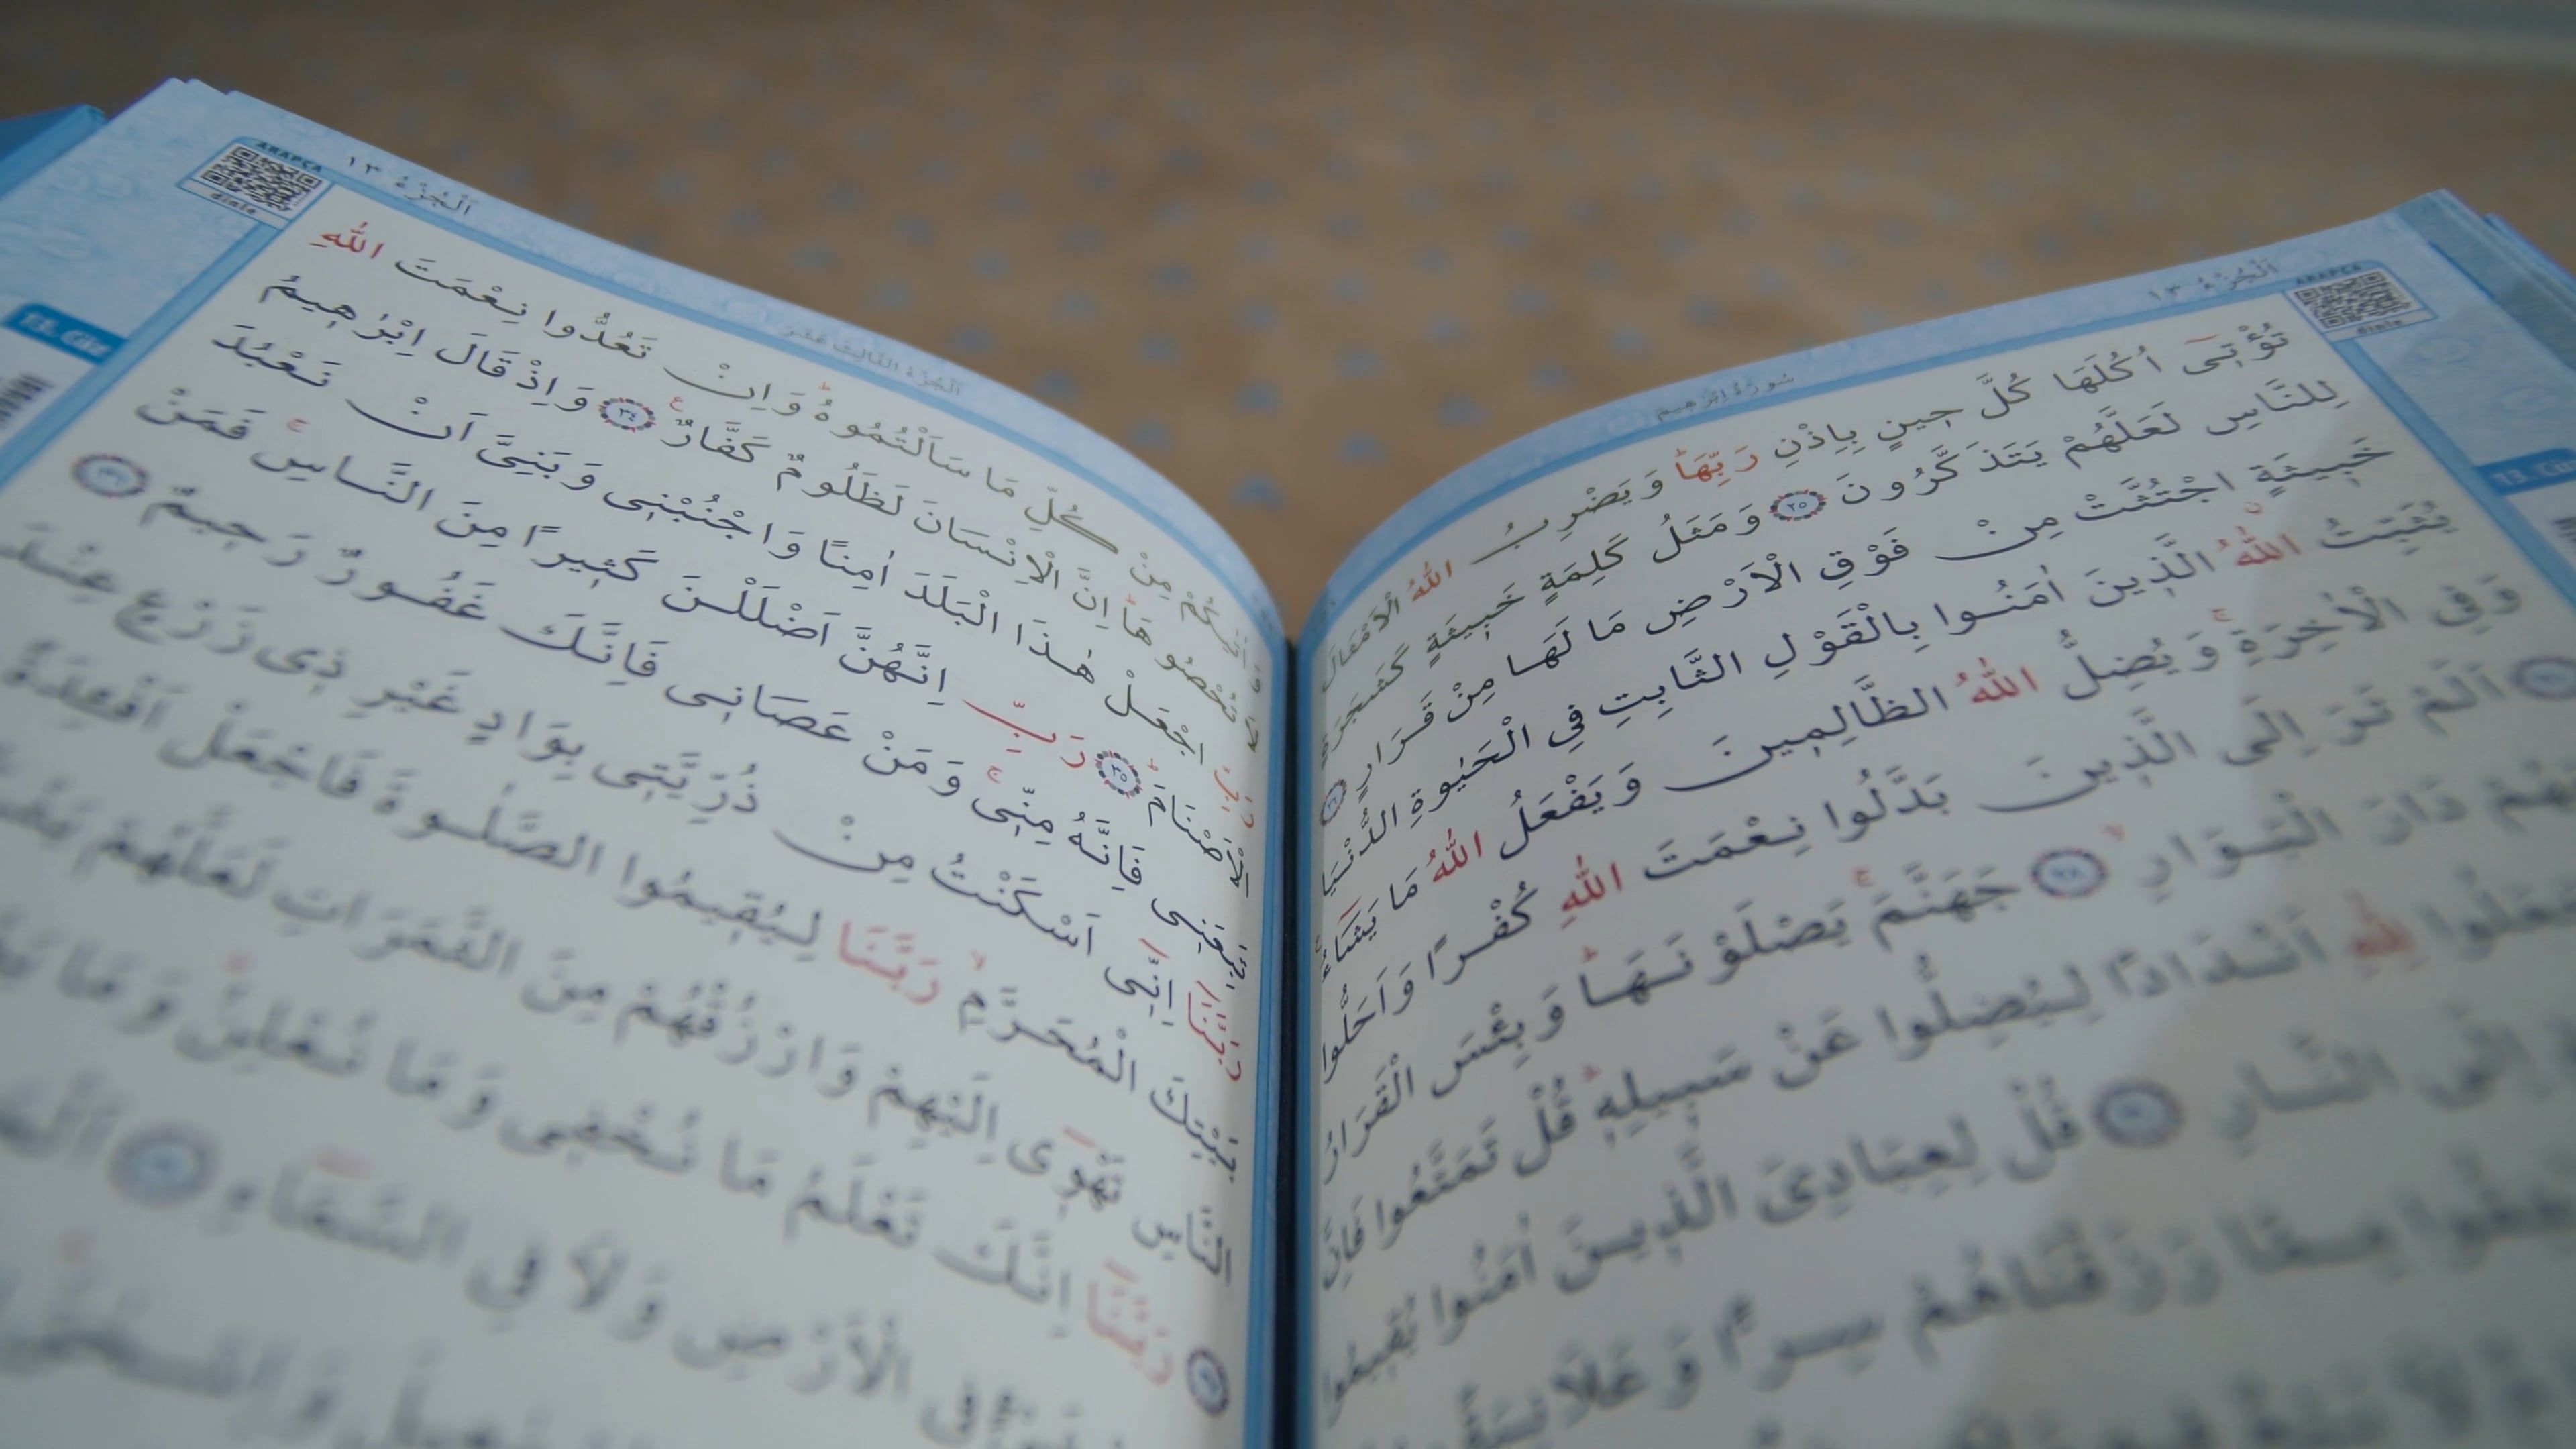 اَلْجُزْءُ ١٣
ARAPÇA
dinle
سُورَةُ اِبْرٰهِيمَ
تُؤْتٓى اُكُلَهَا كُلَّ حِينٍ بِاِذْنِ رَبِّهَاۜ وَيَضْرِبُ اللّٰهُ الْاَمْثَالَ
لِلنَّاسِ لَعَلَّهُمْ يَتَذَكَّرُونَ ٢٥ وَمَثَلُ كَلِمَةٍ خَبِيثَةٍ كَشَجَرَةٍ
خَبِيثَةٍ اجْتُثَّتْ مِنْ فَوْقِ الْاَرْضِ مَا لَهَا مِنْ قَرَارٍ ٢٦
يُثَبِّتُ اللّٰهُ الَّذِينَ اٰمَنُوا بِالْقَوْلِ الثَّابِتِ فِي الْحَيٰوةِ الدُّنْيَا
وَفِي الْاٰخِرَةِۚ وَيُضِلُّ اللّٰهُ الظَّالِمِينَ وَيَفْعَلُ اللّٰهُ مَا يَشَٓاءُ۟
اَلَمْ تَرَ اِلَى الَّذِينَ بَدَّلُوا نِعْمَتَ اللّٰهِ كُفْرًا وَاَحَلُّوا
دَارَ الْبَوَارِۙ ٢٨ جَهَنَّمَۚ يَصْلَوْنَهَاۜ وَبِئْسَ الْقَرَارُ
لِلّٰهِ اَنْدَادًا لِيُضِلُّوا عَنْ سَبِيلِهِۜ قُلْ تَمَتَّعُوا فَاِنَّ
اِلَى النَّارِ قُلْ لِعِبَادِيَ الَّذِينَ اٰمَنُوا يُقِيمُوا
مِمَّا رَزَقْنَاهُمْ سِرًّا وَعَلَانِيَةً
اَلْجُزْءُ ١٣
ARAPÇA
dinle
اَلْجُزْءُ الثَّالِثَ عَشَرَ
13. Cüz
مِنْ كُلِّ مَا سَاَلْتُمُوهُۜ وَاِنْ تَعُدُّوا نِعْمَتَ اللّٰهِ
لَا تُحْصُوهَاۜ اِنَّ الْاِنْسَانَ لَظَلُومٌ كَفَّارٌ۟ ٣٤ وَاِذْ قَالَ اِبْرٰهِيمُ
رَبِّ اجْعَلْ هٰذَا الْبَلَدَ اٰمِنًا وَاجْنُبْنِي وَبَنِيَّ اَنْ نَعْبُدَ
الْاَصْنَامَۜ ٣٥ رَبِّ اِنَّهُنَّ اَضْلَلْنَ كَثِيرًا مِنَ النَّاسِۚ فَمَنْ
تَبِعَنِي فَاِنَّهُ مِنِّيۚ وَمَنْ عَصَانِي فَاِنَّكَ غَفُورٌ رَحِيمٌ ٣٦
رَبَّنَٓا اِنِّٓي اَسْكَنْتُ مِنْ ذُرِّيَّتِي بِوَادٍ غَيْرِ ذِي زَرْعٍ عِنْدَ
بَيْتِكَ الْمُحَرَّمِۙ رَبَّنَا لِيُقِيمُوا الصَّلٰوةَ فَاجْعَلْ اَفْـِٔدَةً
النَّاسِ تَهْوٓي اِلَيْهِمْ وَارْزُقْهُمْ مِنَ الثَّمَرَاتِ لَعَلَّهُمْ
رَبَّنَٓا اِنَّكَ تَعْلَمُ مَا نُخْفِي وَمَا نُعْلِنُۜ وَمَا
فِي الْاَرْضِ وَلَا فِي السَّمَٓاءِ